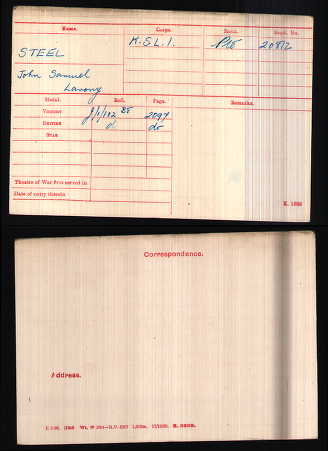 Name.
Corps.
Rank.
Regtl. No.
STEEL
K.S.L.I.
Pte
20812
John Samuel
Medal.
Roll.
Page.
Remarks.
Victory
2097
British
do
do
Star
Theatre of War first served in
Date of entry therein
K. 1380
Correspondence.
Address.